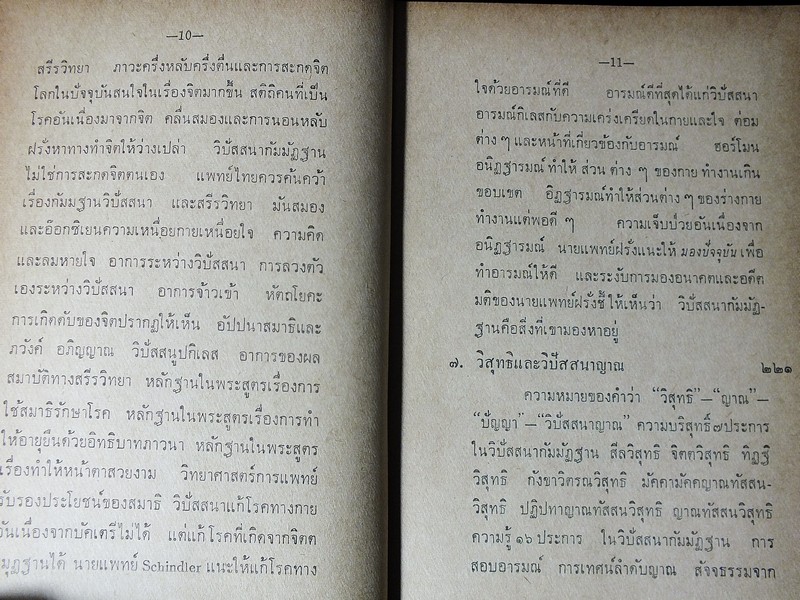 —10—
สรีรวิทยา ภาวะครึ่งหลับครึ่งตื่นและการสะกดจิต
โลกในปัจจุบันสนใจในเรื่องจิตมากขึ้น สถิติคนที่เป็น
โรคอันเนื่องมาจากจิต คลื่นสมองและการนอนหลับ
ฝรั่งหาทางทำจิตให้ว่างเปล่า วิปัสสนากัมมัฏฐาน
ไม่ใช่การสะกดจิตตนเอง แพทย์ไทยควรค้นคว้า
เรื่องกัมมฐานวิปัสสนา และสรีรวิทยา มันสมอง
และอ๊อกซิเยนความเหนื่อยกายเหนื่อยใจ ความคิด
และลมหายใจ อาการระหว่างวิปัสสนา การลวงตัว
เองระหว่างวิปัสสนา อาการจ้าวเข้า หัตถโยคะ
การเกิดดับของจิตปรากฏให้เห็น อัปปนาสมาธิและ
ภวังค์ อภิญญาณ วิปัสสนูปกิเลส อาการของผล
สมาบัติทางสรีรวิทยา หลักฐานในพระสูตรเรื่องการ
ใช้สมาธิรักษาโรค หลักฐานในพระสูตรเรื่องการทำ
ให้อายุยืนด้วยอิทธิบาทภาวนา หลักฐานในพระสูตร
เรื่องทำให้หน้าตาสวยงาม วิทยาศาสตร์การแพทย์
รับรองประโยชน์ของสมาธิ วิปัสสนาแก้โรคทางกาย
อันเนื่องจากบัคเตรีไม่ได้ แต่แก้โรคที่เกิดจากจิตต
มุฏฐานได้ นายแพทย์ Schindler แนะให้แก้โรคทาง
—11—
ใจด้วยอารมณ์ที่ดี อารมณ์ดีที่สุดได้แก่วิปัสสนา
อารมณ์กิเลสกับความเคร่งเครียดในกายและใจ ต่อม
ต่าง ๆ และหน้าที่เกี่ยวข้องกับอารมณ์ ฮอร์โมน
อนิฏฐารมณ์ทำให้ ส่วน ต่าง ๆ ของกาย ทำงานเกิน
ขอบเขต อิฏฐารมณ์ทำให้ส่วนต่าง ๆ ของร่างกาย
ทำงานแต่พอดี ๆ ความเจ็บป่วยอันเนื่องจาก
อนิฏฐารมณ์ นายแพทย์ฝรั่งแนะให้ มองปัจจุบัน เพื่อ
ทำอารมณ์ให้ดี และระงับการมองอนาคตและอดีต
มติของนายแพทย์ฝรั่งชี้ให้เห็นว่า วิปัสสนากัมมัฏ-
ฐานคือสิ่งที่เขามองหาอยู่
๗. วิสุทธิและวิปัสสนาญาณ ๒๒๑
ความหมายของคำว่า “วิสุทธิ”—“ญาณ”—
“ปัญญา”—“วิปัสสนาญาณ” ความบริสุทธิ์ ๗ ประการ
ในวิปัสสนากัมมัฏฐาน สีลวิสุทธิ จิตตวิสุทธิ ทิฏฐิ
วิสุทธิ กังขาวิตรณวิสุทธิ มัคคามัคคญาณทัสสน-
วิสุทธิ ปฏิปทาญาณทัสสนวิสุทธิ ญาณทัสสนวิสุทธิ
ความรู้ ๑๖ ประการ ในวิปัสสนากัมมัฏฐาน การ
สอบอารมณ์ การเทศน์ลำดับญาณ สัจจธรรมจาก